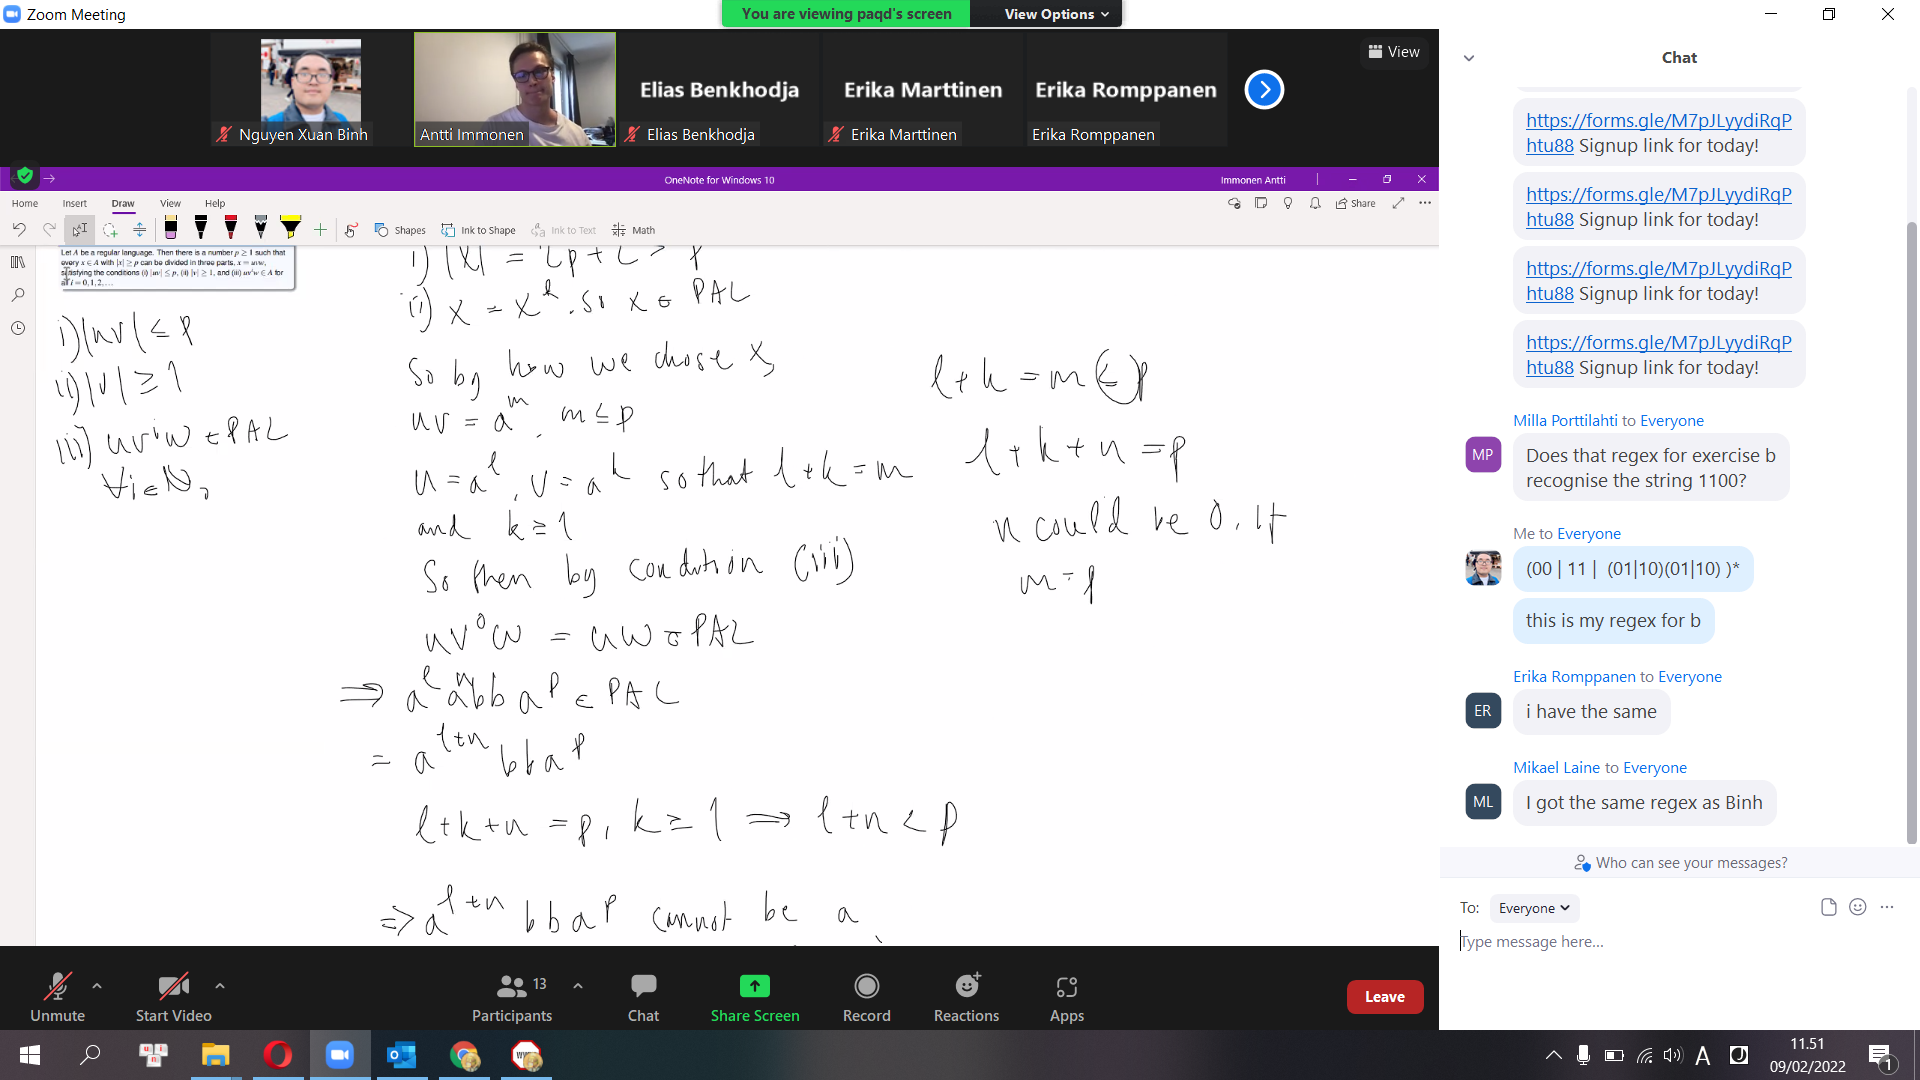 Zoom Meeting
You are viewing paqd's screen
View Options
View
Nguyen Xuan Binh
Antti Immonen
Elias Benkhodja
Elias Benkhodja
Erika Marttinen
Erika Marttinen
Erika Romppanen
Erika Romppanen
OneNote for Windows 10
Immonen Antti
Home Insert Draw View Help
Share
Shapes
Ink to Shape
Ink to Text
Math
Let A be a regular language. Then there is a number p ≥ 1 such that
every x ∈ A with |x| ≥ p can be divided in three parts, x = uvw,
satisfying the conditions (i) |uv| ≤ p, (ii) |v| ≥ 1, and (iii) uvⁱw ∈ A for
all i = 0,1,2,…
i) |uv| ≤ p
ii) |v| ≥ 1
iii) uvⁱw ∈ PAL
∀i ∈ ℕ,
i) |x| = 2p + 2 > p
ii) x = xᴿ, so x ∈ PAL
So by how we chose x,
uv = aᵐ, m ≤ p
u = aˡ, v = aᵏ so that l+k = m
and k ≥ 1
So then by condition (iii)
uv⁰w = uw ∈ PAL
⇒ aˡ aⁿbb aᵖ ∈ PAL
= aˡ⁺ⁿ bbaᵖ
l+k+n = p, k ≥ 1 ⇒ l+n < p
⇒ aˡ⁺ⁿ bbaᵖ cannot be a
l+k = m ≤ p
l+k+n = p
n could be 0, if
m = p
Chat
https://forms.gle/M7pJLyydiRqP
htu88 Signup link for today!
https://forms.gle/M7pJLyydiRqP
htu88 Signup link for today!
https://forms.gle/M7pJLyydiRqP
htu88 Signup link for today!
https://forms.gle/M7pJLyydiRqP
htu88 Signup link for today!
Milla Porttilahti to Everyone
MP
Does that regex for exercise b
recognise the string 1100?
Me to Everyone
(00 | 11 | (01|10)(01|10) )*
this is my regex for b
Erika Romppanen to Everyone
ER
i have the same
Mikael Laine to Everyone
ML
I got the same regex as Binh
Who can see your messages?
To: Everyone
Type message here...
Unmute
Start Video
13
Participants
Chat
Share Screen
Record
Reactions
Apps
Leave
A
11.51
09/02/2022
1